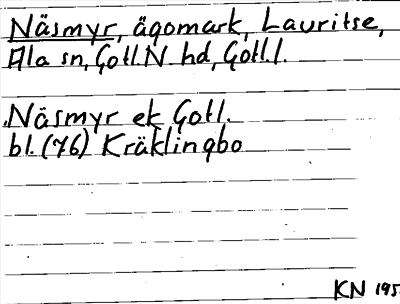 Näsmyr, ägomark, Lauritse,
Ala sn, Gotl.N. hd, Gotl.l.
Näsmyr ek Gotl.
bl. (76) Kräklingbo
KN 195